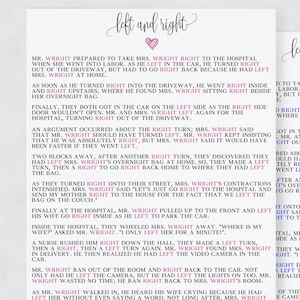 left and right
MR. WRIGHT PREPARED TO TAKE MRS. WRIGHT RIGHT TO THE HOSPITAL
WHEN SHE WENT INTO LABOR. AS HE LEFT IN THE CAR, HE TURNED RIGHT
OUT OF THE DRIVEWAY, BUT HAD TO GO RIGHT BACK BECAUSE HE HAD LEFT
MRS. WRIGHT AT HOME.
AS SOON AS HE TURNED RIGHT INTO THE DRIVEWAY, HE WENT RIGHT INSIDE
AND RIGHT UPSTAIRS, WHERE HE FOUND MRS. WRIGHT SITTING RIGHT BESIDE
HER OVERNIGHT BAG.
FINALLY, THEY BOTH GOT IN THE CAR ON THE LEFT SIDE AS THE RIGHT SIDE
DOOR WOULDN'T OPEN. MR. AND MRS. WRIGHT LEFT AGAIN FOR THE
HOSPITAL, TURNING RIGHT OUT OF THE DRIVEWAY.
AN ARGUMENT OCCURRED ABOUT THE RIGHT TURN; MRS. WRIGHT SAID
THAT MR. WRIGHT SHOULD HAVE TURNED LEFT. MR. WRIGHT KEPT INSISTING
THAT HE WAS ABSOLUTELY RIGHT, BUT MRS. WRIGHT SAID IT WOULD HAVE
BEEN FASTER IF THEY WENT LEFT.
TWO BLOCKS AWAY, AFTER ANOTHER RIGHT TURN, THEY DISCOVERED THEY
HAD LEFT MRS. WRIGHT'S OVERNIGHT BAG AT HOME. SO, THEY MADE A LEFT
TURN, THEN A RIGHT TO GO RIGHT BACK HOME TO WHERE THEY HAD LEFT
THE BAG.
AS THEY TURNED RIGHT ONTO THEIR STREET, MRS. WRIGHT'S CONTRACTIONS
INTENSIFIED. MRS. WRIGHT SAID "LET'S JUST GO RIGHT TO THE HOSPITAL AND
SEND MY MOM RIGHT TO THE HOUSE FOR THE FACT THAT WE LEFT THE
BAG ON THE COUCH."
FINALLY AT THE HOSPITAL, MR. WRIGHT PULLED UP TO THE FRONT AND LEFT
HIS WIFE GO RIGHT INSIDE AS HE LEFT TO PARK THE CAR.
INSIDE THE HOSPITAL, THEY WHEELED MRS. WRIGHT AWAY. "WHERE IS MY
WIFE?" ASKED MR. WRIGHT. "I ONLY LEFT HER FOR A MINUTE!"
A NURSE RUSHED HIM RIGHT DOWN THE HALL. THEY MADE A LEFT TURN,
THEN A RIGHT, THEN A LEFT TURN AGAIN. MR. WRIGHT FOUND MRS. WRIGHT
IN DELIVERY. HE THEN REALIZED HE HAD LEFT THE VIDEO CAMERA IN THE
CAR.
MR. WRIGHT RAN OUT OF THE ROOM AND RIGHT BACK TO THE CAR. NOT
ONLY HAD HE LEFT THE CAMERA, BUT HE HAD LEFT THE LIGHTS ON TOO. MR.
WRIGHT WASTED NO TIME; HE RAN RIGHT BACK TO MRS. WRIGHT'S ROOM.
AS MR. WRIGHT WALKED IN, HE HEARD HIS WIFE ASKING IF HE HAD LEFT
HER WITHOUT EVEN SAYING A WORD. NOT LONG AFTER, MRS. WRIGHT